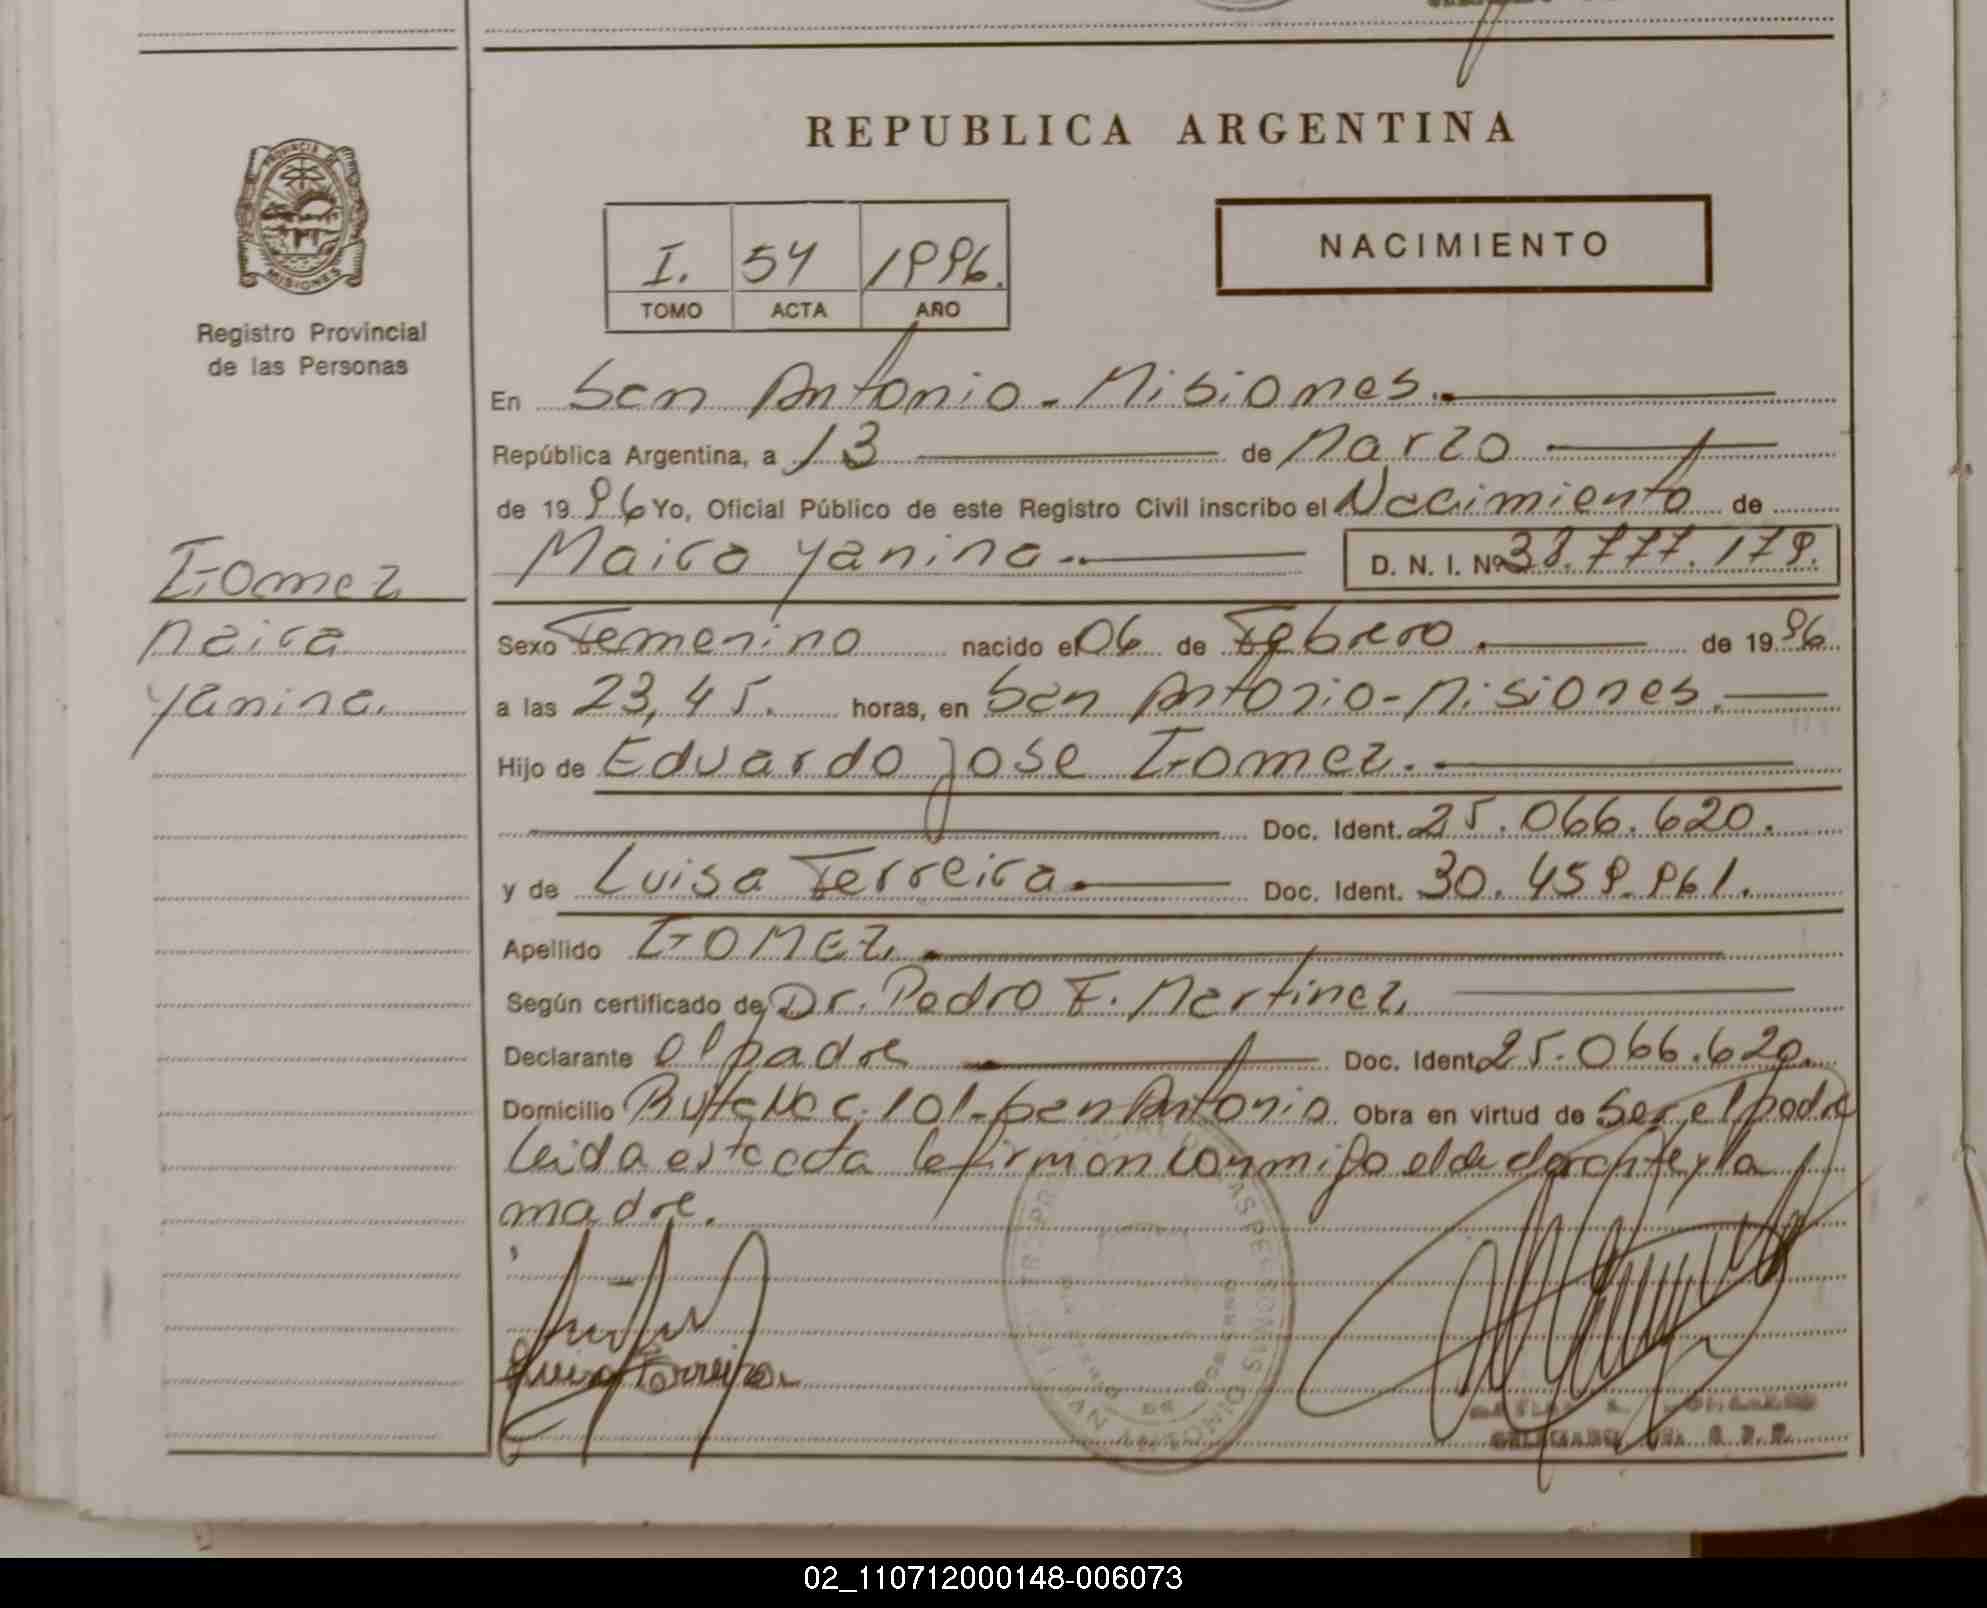 REPUBLICA ARGENTINA
PROVINCIA DE
MISIONES
Registro Provincial
de las Personas
I. 54 1996.
TOMO ACTA AÑO
NACIMIENTO
En San Antonio - Misiones.
República Argentina, a 13 de Marzo
de 1996 Yo, Oficial Público de este Registro Civil inscribo el Nacimiento de
Maira Yanina. D. N. I. Nº 38.777.179.
Gomez
Maira
Yanina.
Sexo Femenino nacido el 06 de Febrero. de 1996.
a las 23,45. horas, en San Antonio - Misiones.
Hijo de Eduardo Jose Gomez.
Doc. Ident. 25.066.620.
y de Luisa Ferreira. Doc. Ident. 30.459.961.
Apellido GOMEZ.
Según certificado de Dr. Pedro F. Martinez
Declarante el padre Doc. Ident. 25.066.620.
Domicilio Ruta Nac. 101 - San Antonio. Obra en virtud de ser el padre
Leida esta acta la firman conmigo el declarante y la
madre.
Luisa Ferreira
02_110712000148-006073